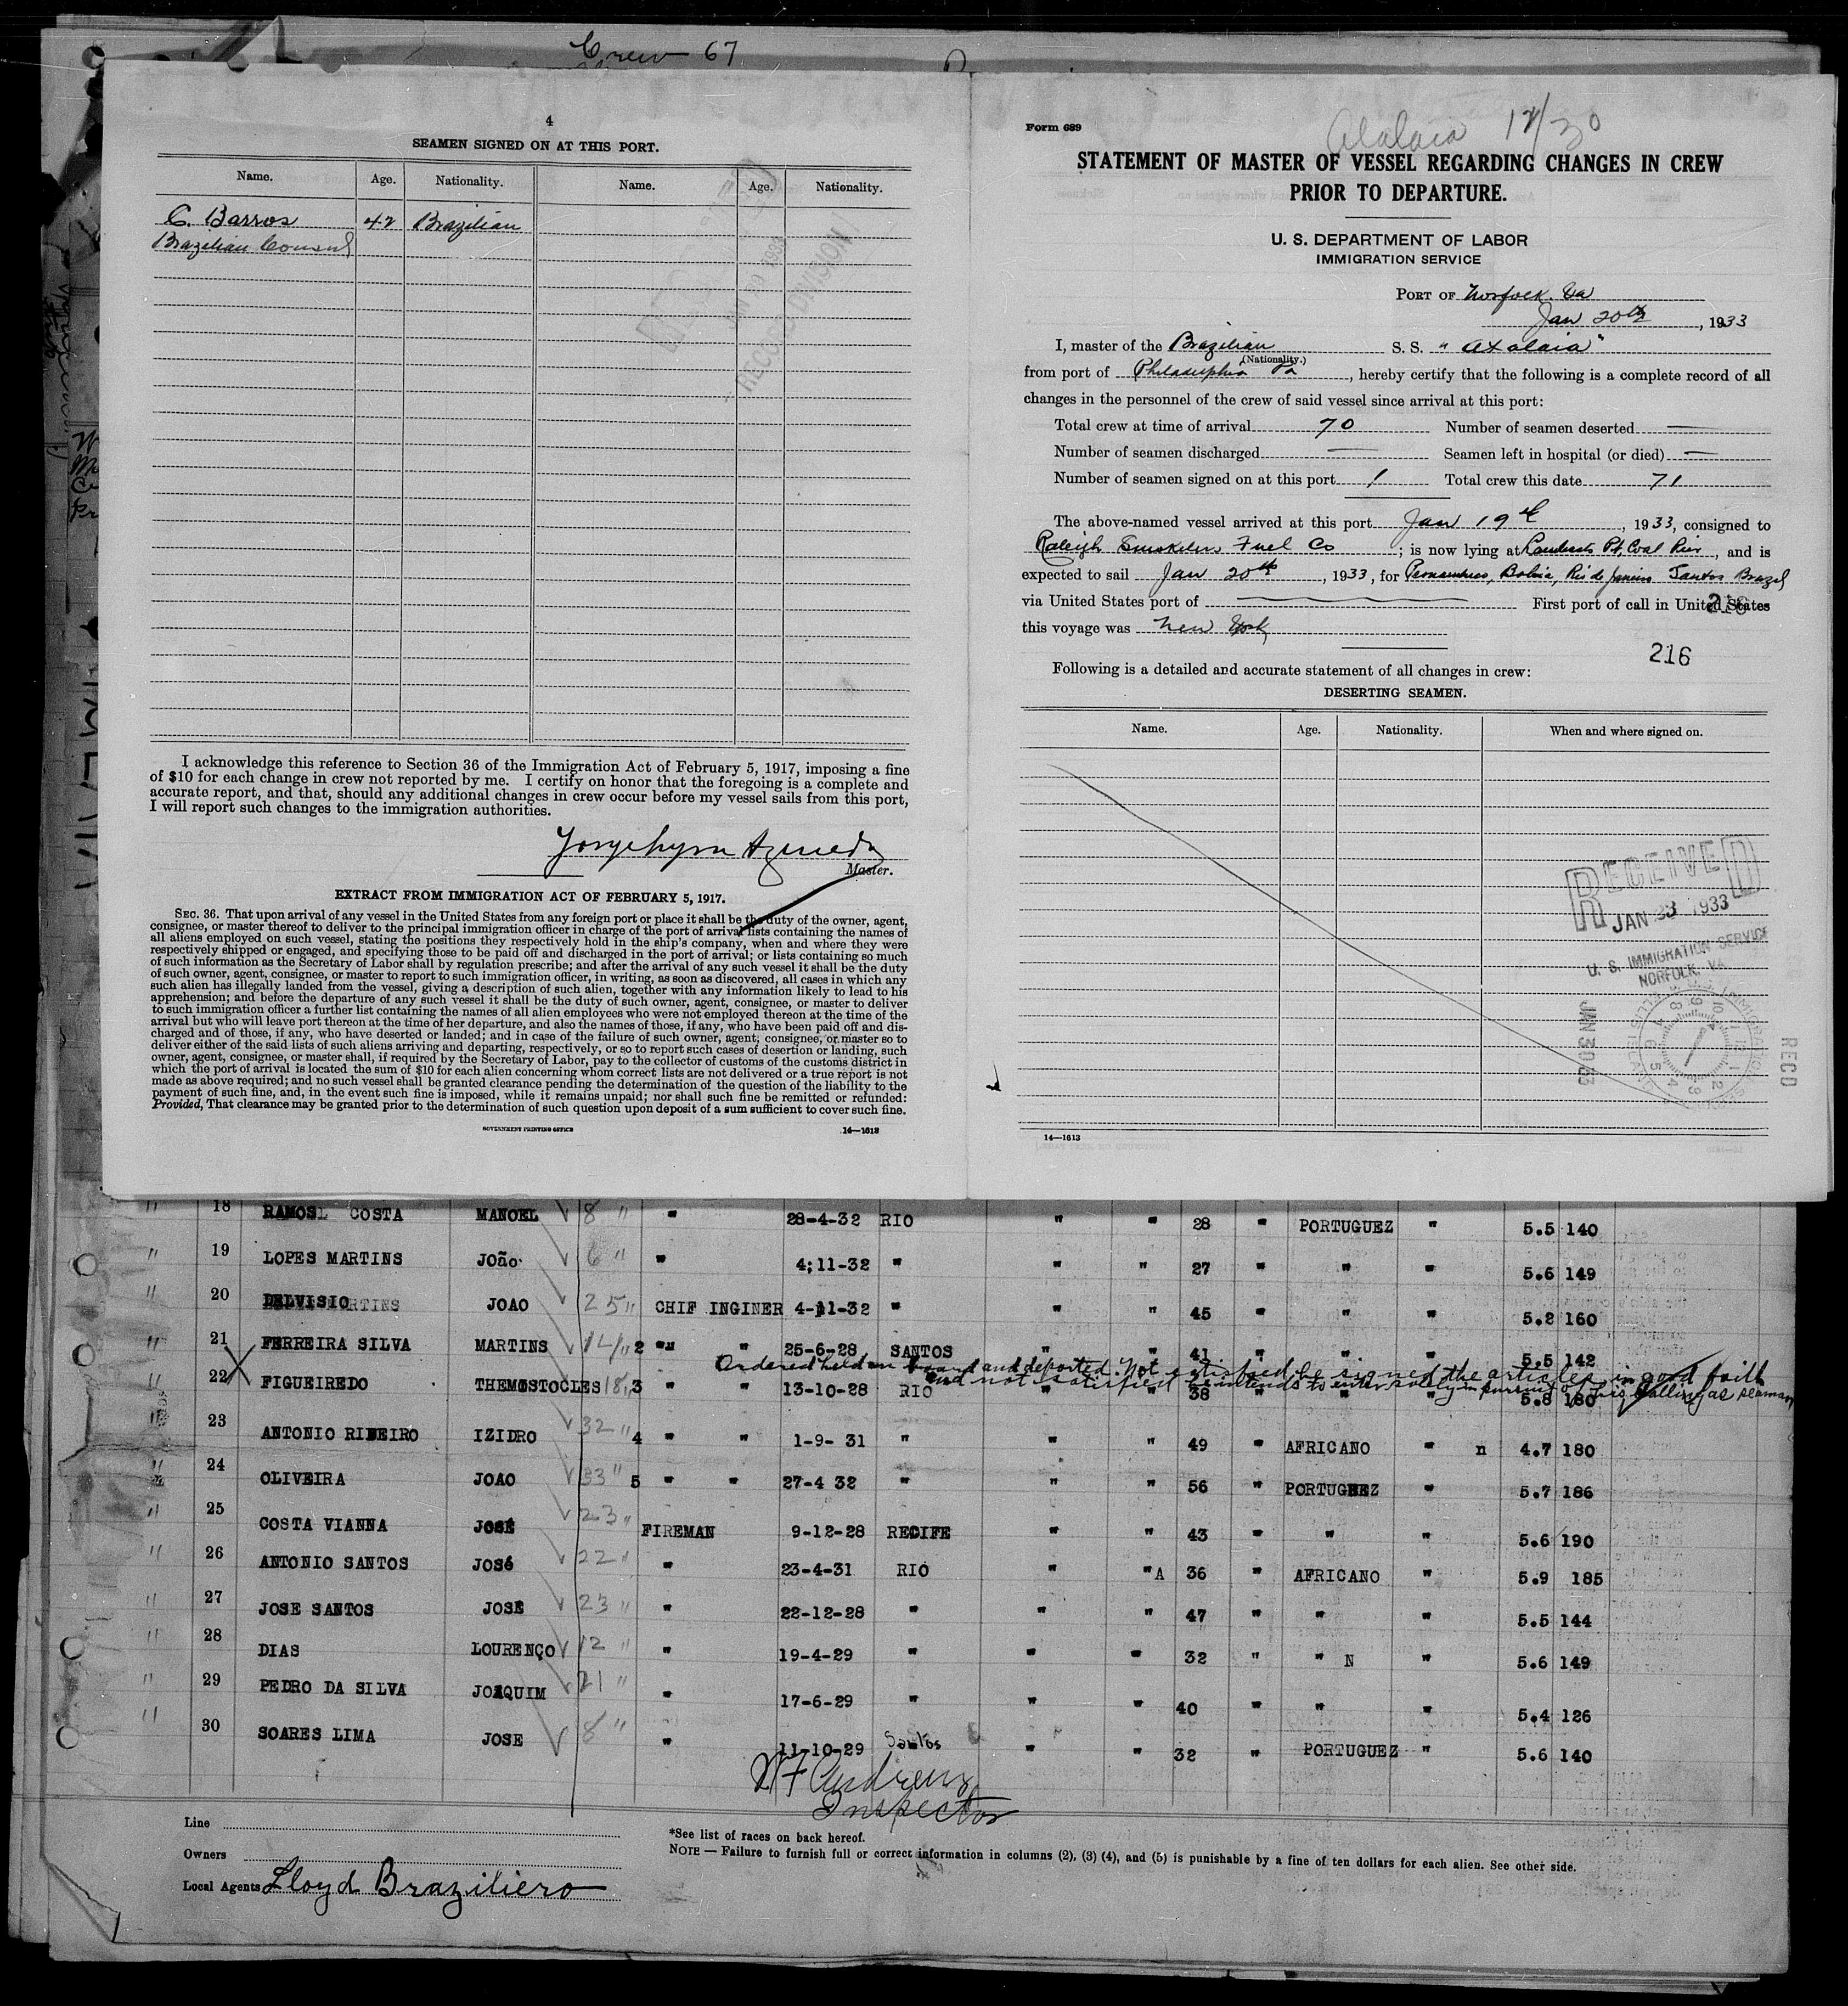 Crew 67
4
SEAMEN SIGNED ON AT THIS PORT.
Name. Age. Nationality. Name. Age. Nationality.
C. Barros 42 Brazilian
Brazilian Consul
RECORD DIVISION
I acknowledge this reference to Section 36 of the Immigration Act of February 5, 1917, imposing a fine
of $10 for each change in crew not reported by me. I certify on honor that the foregoing is a complete and
accurate report, and that, should any additional changes in crew occur before my vessel sails from this port,
I will report such changes to the immigration authorities.
Master.
EXTRACT FROM IMMIGRATION ACT OF FEBRUARY 5, 1917.
SEC. 36. That upon arrival of any vessel in the United States from any foreign port or place it shall be the duty of the owner, agent,
consignee, or master thereof to deliver to the principal immigration officer in charge of the port of arrival lists containing the names of
all aliens employed on such vessel, stating the positions they respectively hold in the ship's company, when and where they were
respectively shipped or engaged, and specifying those to be paid off and discharged in the port of arrival; or lists containing so much
of such information as the Secretary of Labor shall by regulation prescribe; and after the arrival of any such vessel it shall be the duty
of such owner, agent, consignee, or master to report to such immigration officer, in writing, as soon as discovered, all cases in which any
such alien has illegally landed from the vessel, giving a description of such alien, together with any information likely to lead to his
apprehension; and before the departure of any such vessel it shall be the duty of such owner, agent, consignee, or master to deliver
to such immigration officer a further list containing the names of all alien employees who were not employed thereon at the time of the
arrival but who will leave port thereon at the time of her departure, and also the names of those, if any, who have been paid off and dis-
charged and of those, if any, who have deserted or landed; and in case of the failure of such owner, agent, consignee, or master so to
deliver either of the said lists of such aliens arriving and departing, respectively, or so to report such cases of desertion or landing, such
owner, agent, consignee, or master shall, if required by the Secretary of Labor, pay to the collector of customs of the customs district in
which the port of arrival is located the sum of $10 for each alien concerning whom correct lists are not delivered or a true report is not
made as above required; and no such vessel shall be granted clearance pending the determination of the question of the liability to the
payment of such fine, and, in the event such fine is imposed, while it remains unpaid; nor shall such fine be remitted or refunded:
Provided, That clearance may be granted prior to the determination of such question upon deposit of a sum sufficient to cover such fine.
GOVERNMENT PRINTING OFFICE 14—1613
Form 689
Atalaia 12/30
STATEMENT OF MASTER OF VESSEL REGARDING CHANGES IN CREW
PRIOR TO DEPARTURE.
U. S. DEPARTMENT OF LABOR
IMMIGRATION SERVICE
PORT OF Norfolk. Va
Jan 20th, 1933
I, master of the Brazilian S. S. "Atalaia"
(Nationality.)
from port of Philadelphia Pa, hereby certify that the following is a complete record of all
changes in the personnel of the crew of said vessel since arrival at this port:
Total crew at time of arrival 70 Number of seamen deserted —
Number of seamen discharged — Seamen left in hospital (or died) —
Number of seamen signed on at this port 1 Total crew this date 71
The above-named vessel arrived at this port Jan 19th, 1933, consigned to
Raleigh Smokeless Fuel Co; is now lying at Lamberts Pt, Coal Pier, and is
expected to sail Jan 20th, 1933, for Pernambuco, Bahia, Rio de Janeiro Santos Brazil
via United States port of — First port of call in United States
this voyage was New York
216
Following is a detailed and accurate statement of all changes in crew:
DESERTING SEAMEN.
Name. Age. Nationality. When and where signed on.
RECEIVED
JAN 23 1933
U. S. IMMIGRATION SERVICE
NORFOLK, VA
JAN 30 33
RECD
14—1613
18 RAMOS COSTA MANOEL 8 " " 28-4-32 RIO " " 28 " PORTUGUEZ " 5.5 140
19 LOPES MARTINS João 6 " " 4;11-32 " " " 27 " " " 5.6 149
20 DELVISIO JOAO 25 " CHIF INGINER 4-11-32 " " " 45 " " " 5.2 160
21 FERREIRA SILVA MARTINS 14 " 2 " " 25-6-28 SANTOS " " 41 " " " 5.5 142
Ordered held on board and deported. Not satisfied he signed the articles in good faith
and not satisfied he intends to enter solely in pursuit of his calling as seaman
22 FIGUEIREDO THEMISTOCLES 18 " 3 " " 13-10-28 RIO " " 38 " " " 5.8 180
23 ANTONIO RIBEIRO IZIDRO 32 " 4 " " 1-9- 31 " " " 49 " AFRICANO " n 4.7 180
24 OLIVEIRA JOAO 33 " 5 " " 27-4 32 " " " 56 " PORTUGUEZ " 5.7 186
25 COSTA VIANNA JOSÉ 23 " FIREMAN 9-12-28 RECIFE " " 43 " " " 5.6 190
26 ANTONIO SANTOS JOSé 22 " " 23-4-31 RIO " " A 36 " AFRICANO " 5.9 185
27 JOSE SANTOS JOSE 23 " " 22-12-28 " " " 47 " " " 5.5 144
28 DIAS LOURENÇO 12 " " 19-4-29 " " " 32 " " N " 5.6 149
29 PEDRO DA SILVA JOAQUIM 21 " " 17-6-29 " " " 40 " " " 5.4 126
30 SOARES LIMA JOSE 8 " " 11-10-29 Santos " " 32 " PORTUGUEZ " 5.6 140
W F Andrews
Inspector
Line
Owners
Local Agents Lloyd Braziliero
*See list of races on back hereof.
NOTE — Failure to furnish full or correct information in columns (2), (3) (4), and (5) is punishable by a fine of ten dollars for each alien. See other side.